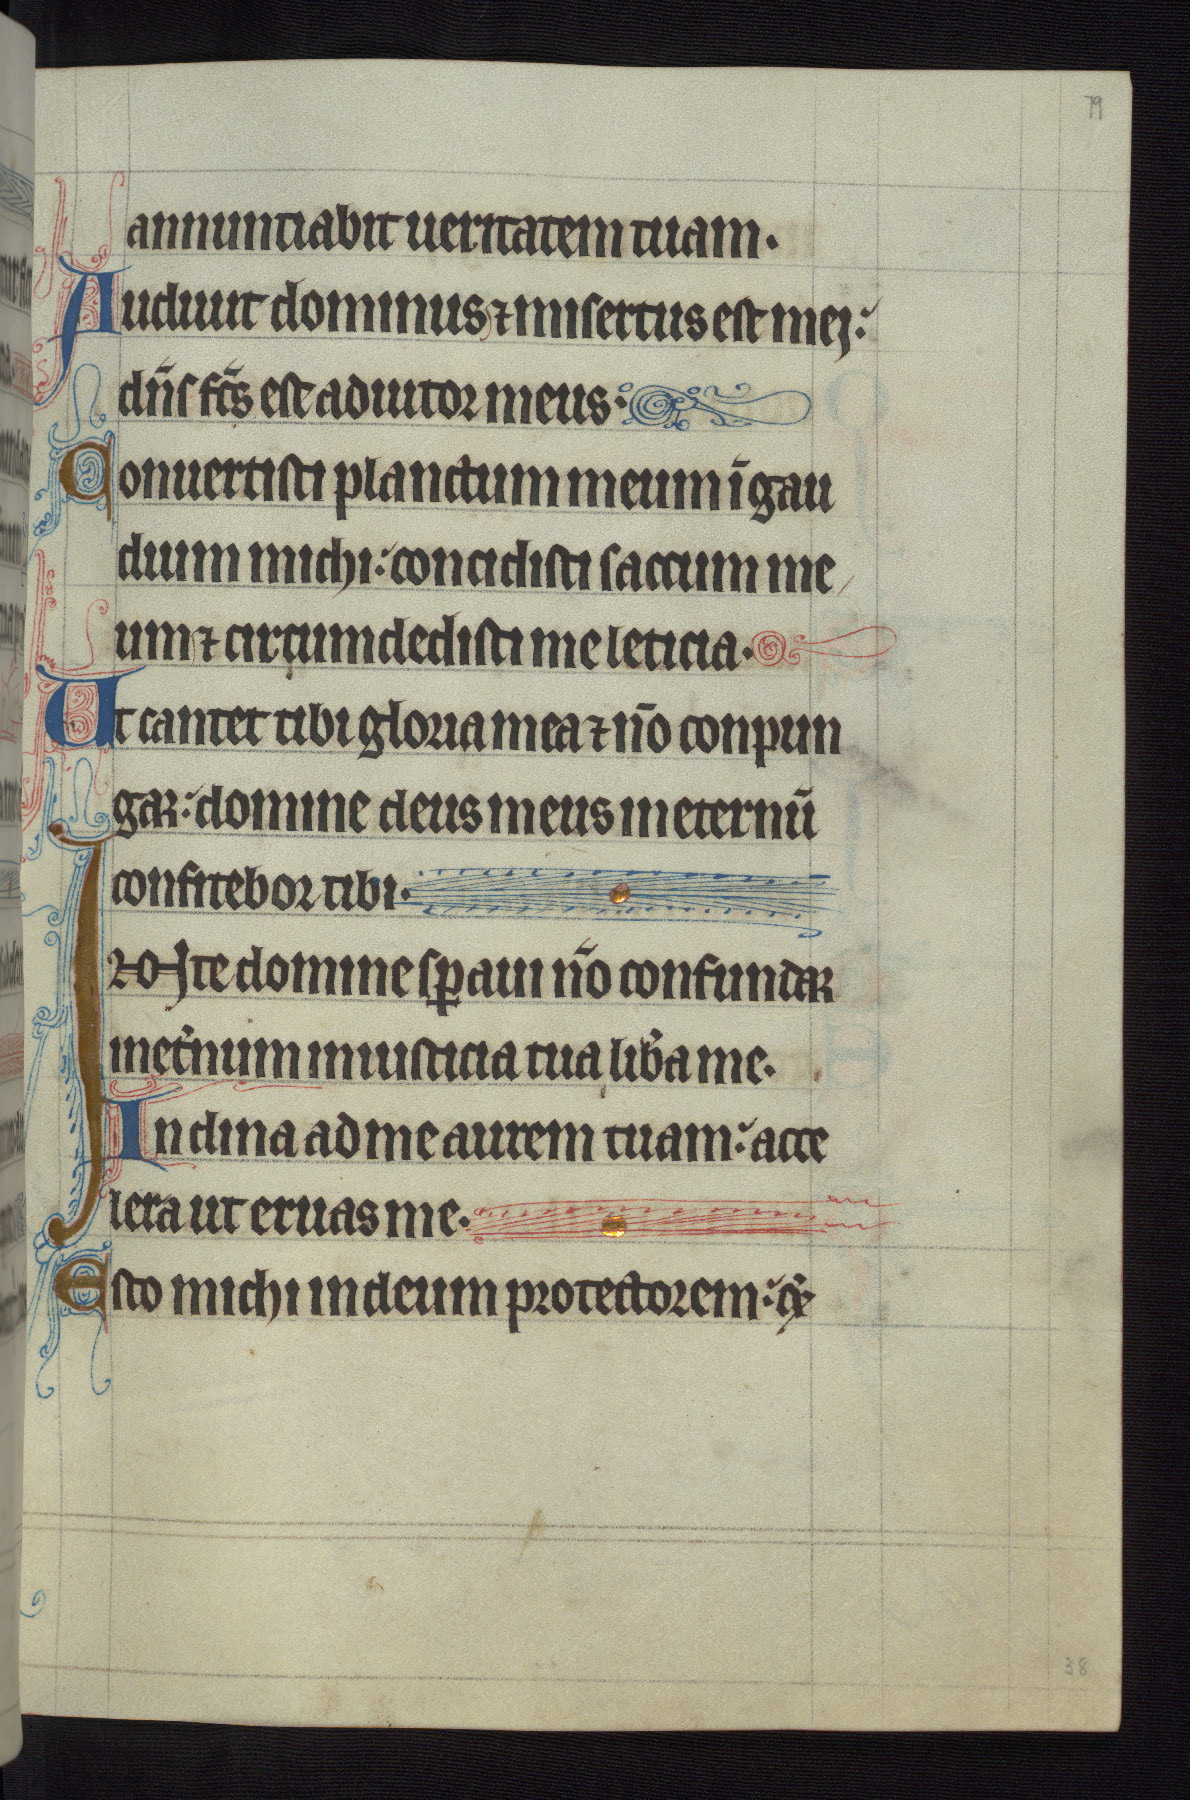 79
annuntiabit ueritatem tuam.
Audiuit dominus ⁊ misertus est mei:
dñs fc̃s est adiutor meus.
Conuertisti planctum meum ĩ gau
dium michi: concidisti saccum me
um ⁊ circumdedisti me leticia.
Ut cantet tibi gloria mea ⁊ nõ conpun
gar: domine deus meus in eternũ
confitebor tibi.
IN te domine sꝑaui nõ confundar
in et̃num in iusticia tua lib̃a me.
Inclina ad me aurem tuam: acce
lera ut eruas me.
Esto michi in deum protectorem: ⁊
38